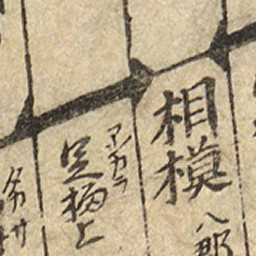 相模 八郡
アシカラ
足柄上